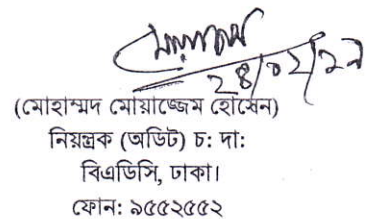 ২৪/০২/১৯
(মোহাম্মদ মোয়াজ্জেম হোসেন)
নিয়ন্ত্রক (অডিট) চ: দা:
বিএডিসি, ঢাকা।
ফোন: ৯৫৫২৫৫২